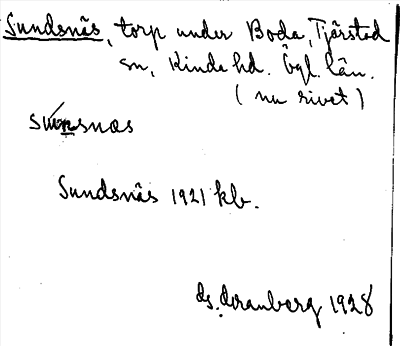 Sundsnäs, torp under Boda, Tjärstad
sn, Kinda hd. Ögl. län.
(nu rivet)
Sundsnäs 1921 kb.
1928